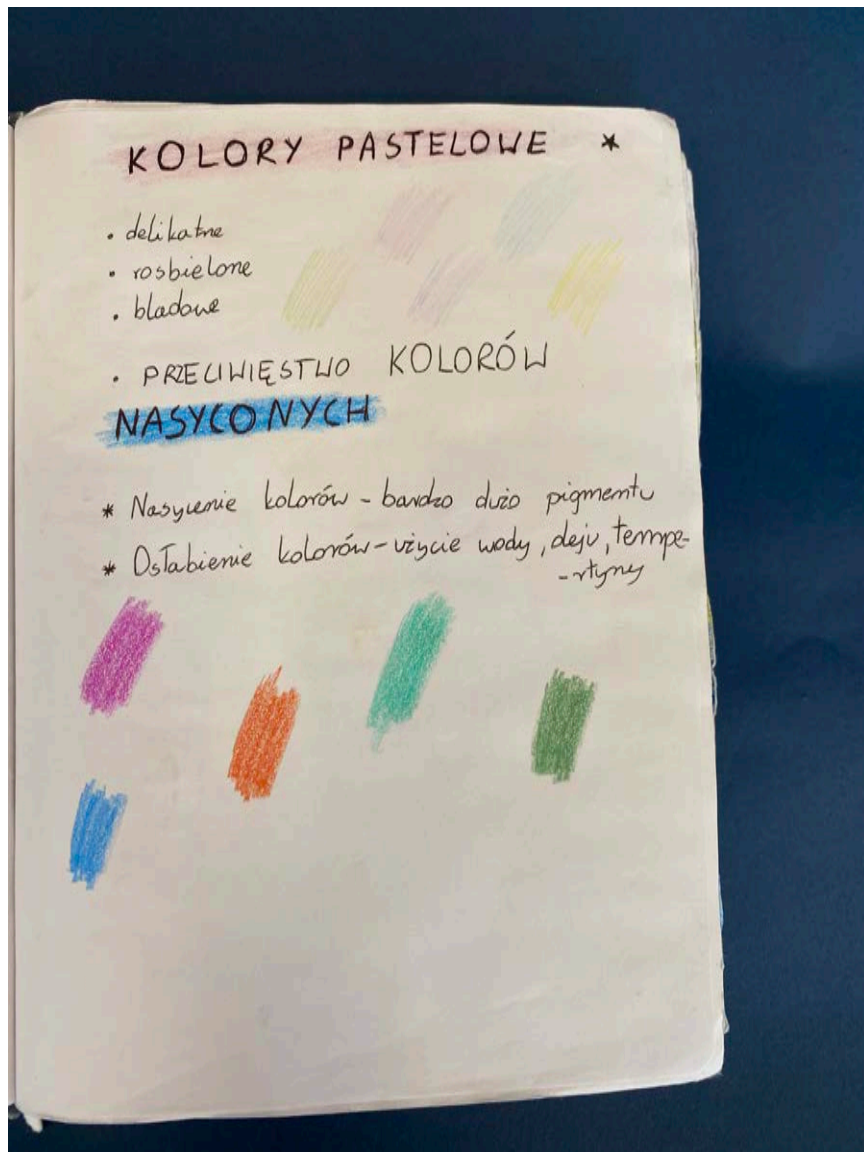 KOLORY PASTELOWE *
• delikatne
• rosbielone
• bladowe
• PRZECIWIĘSTWO KOLORÓW
NASYCONYCH
* Nasycenie kolorów - bardzo dużo pigmentu
* Osłabienie kolorów - użycie wody, oleju, tempe-
-rtyny